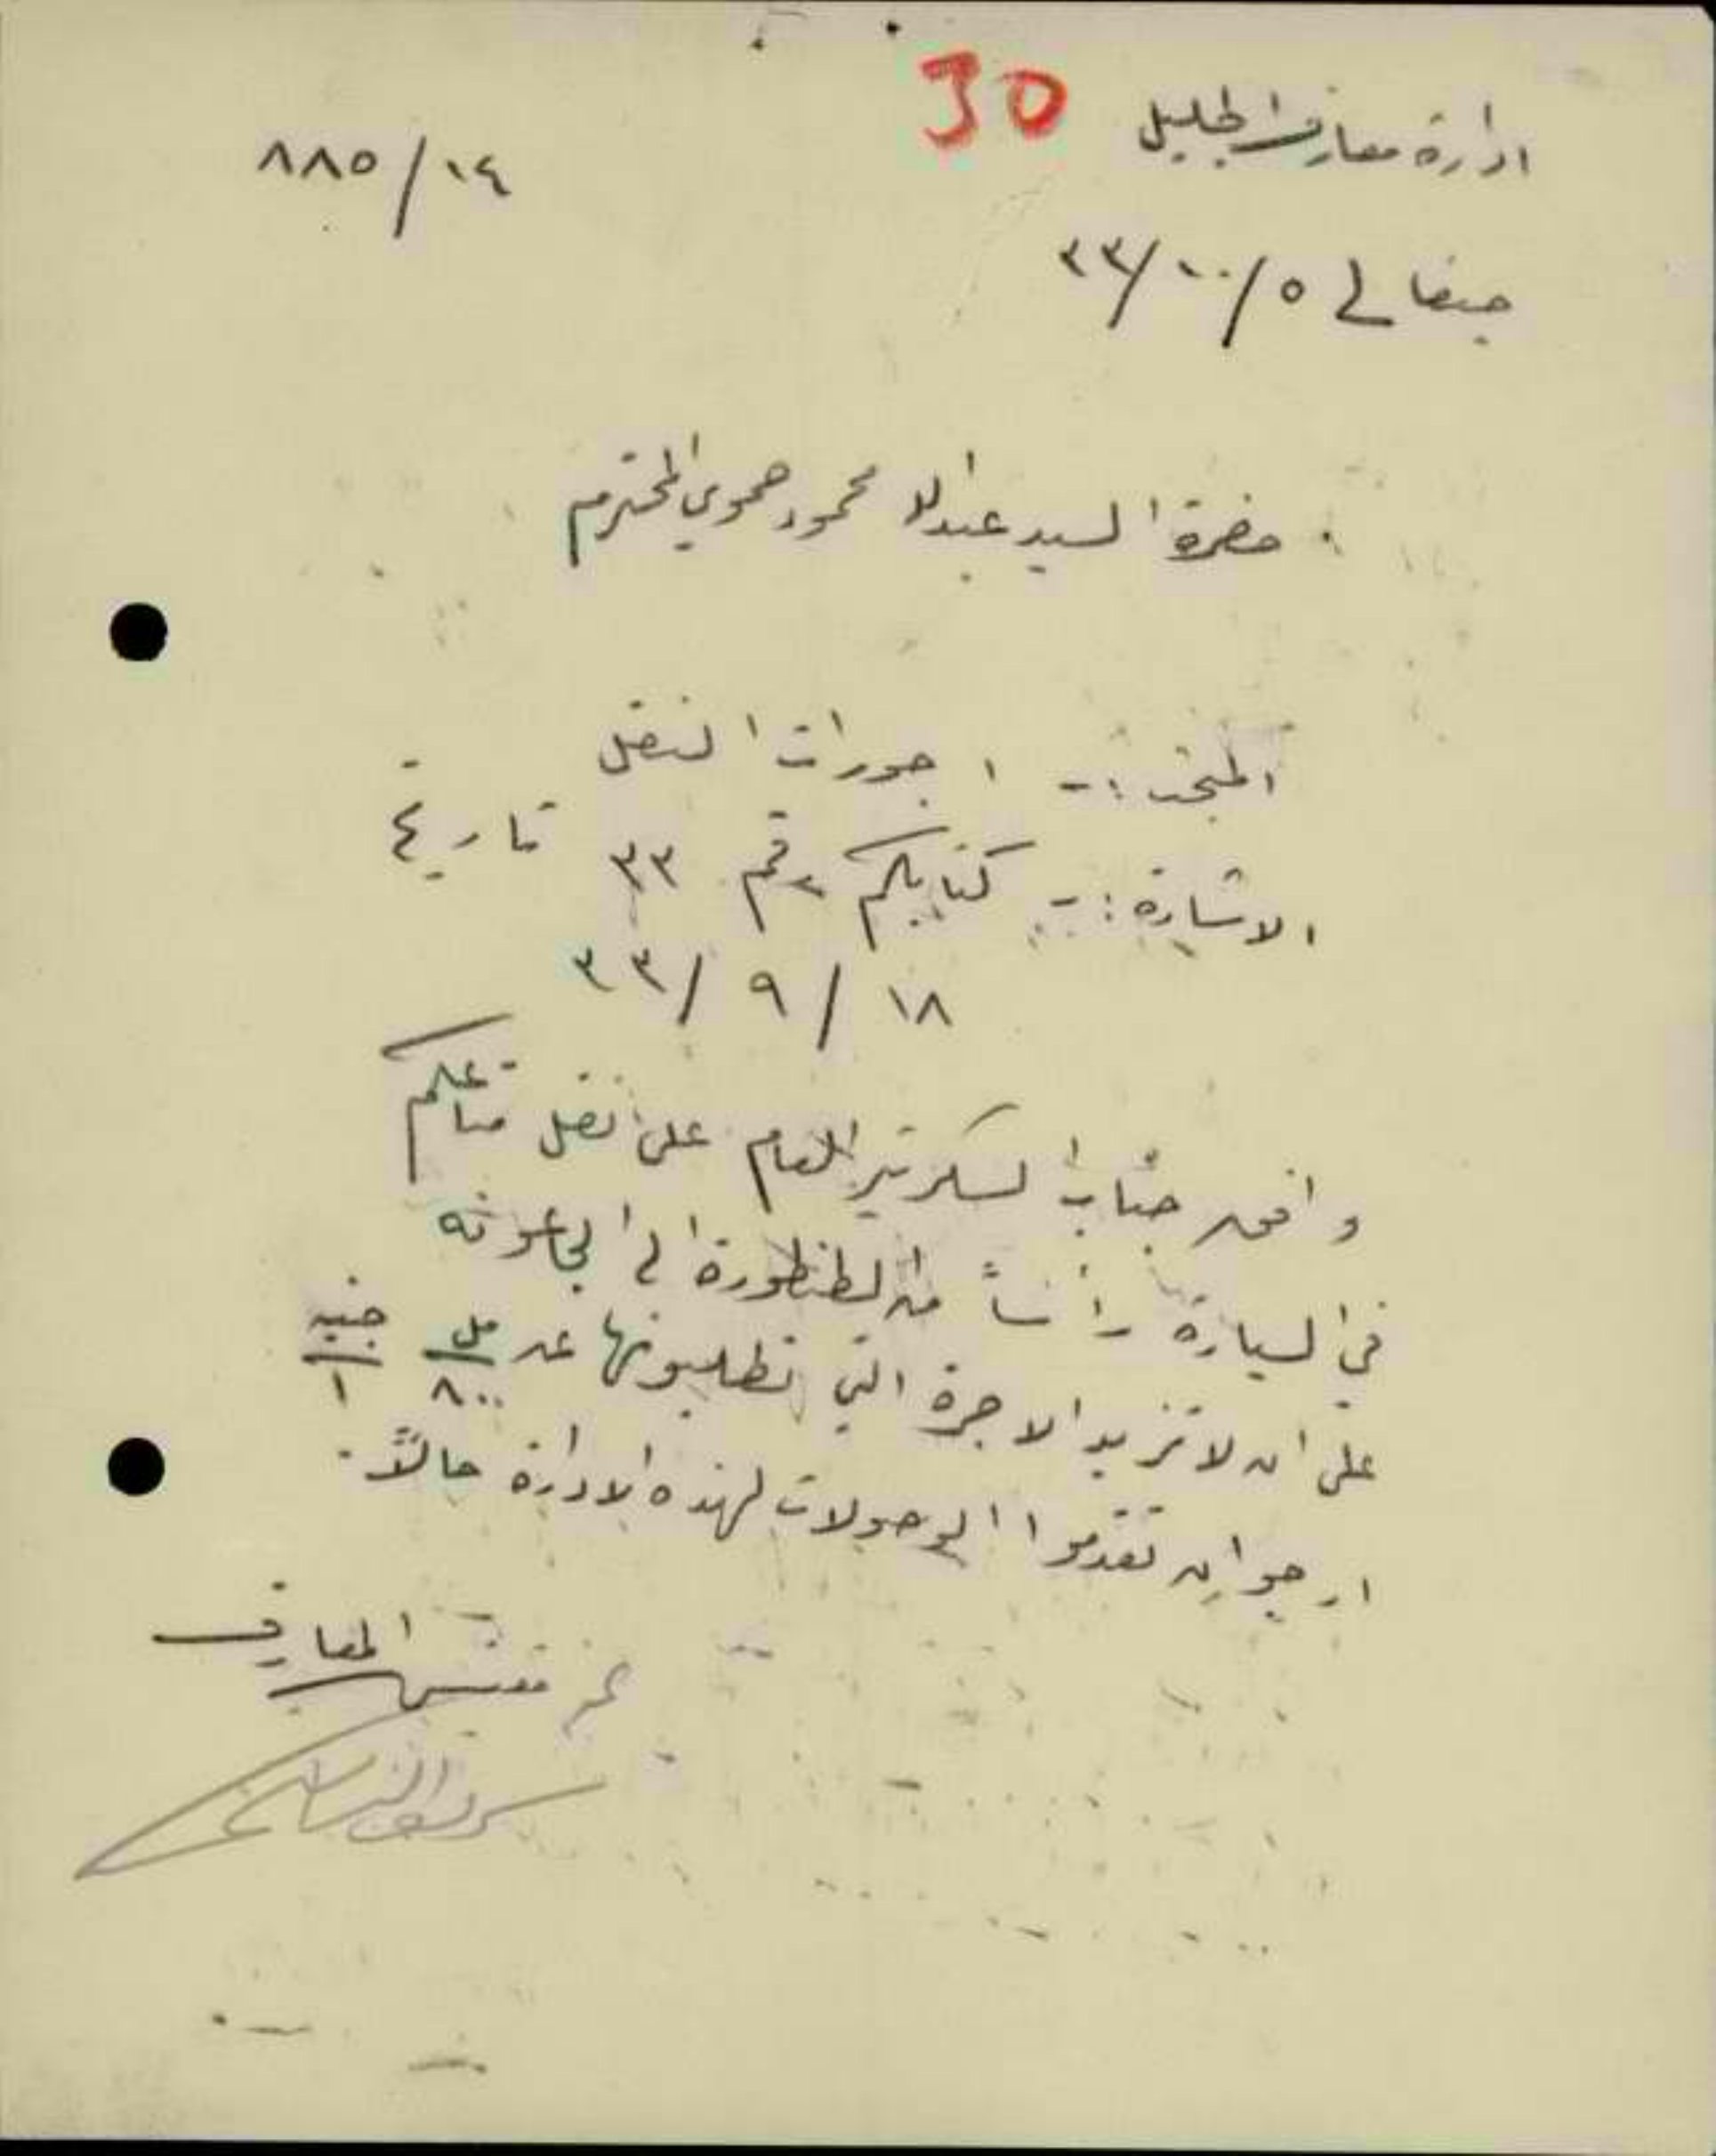 ادارة معارف الجليل 30
١٤/٨٨٥
حيفا في ٥/١٠/٣٣
حضرة السيد عبدالله محمود حموي المحترم
المبحث :- اجورات النقل
الاشارة :- كتابكم رقم ٣٣ تاريخ
١٨/٩/٣٣
وافق جناب السكرتير العام على نقل متاعكم
في السيارة رأساً من الطنطورة الى الجاعونه
على ان لا تزيد الاجرة التي تطلبونها عن مل ٨٠٠ جنيه ١
ارجو ان تقدموا الوصولات لهذه الادارة حالاً.
عن مفتش المعارف